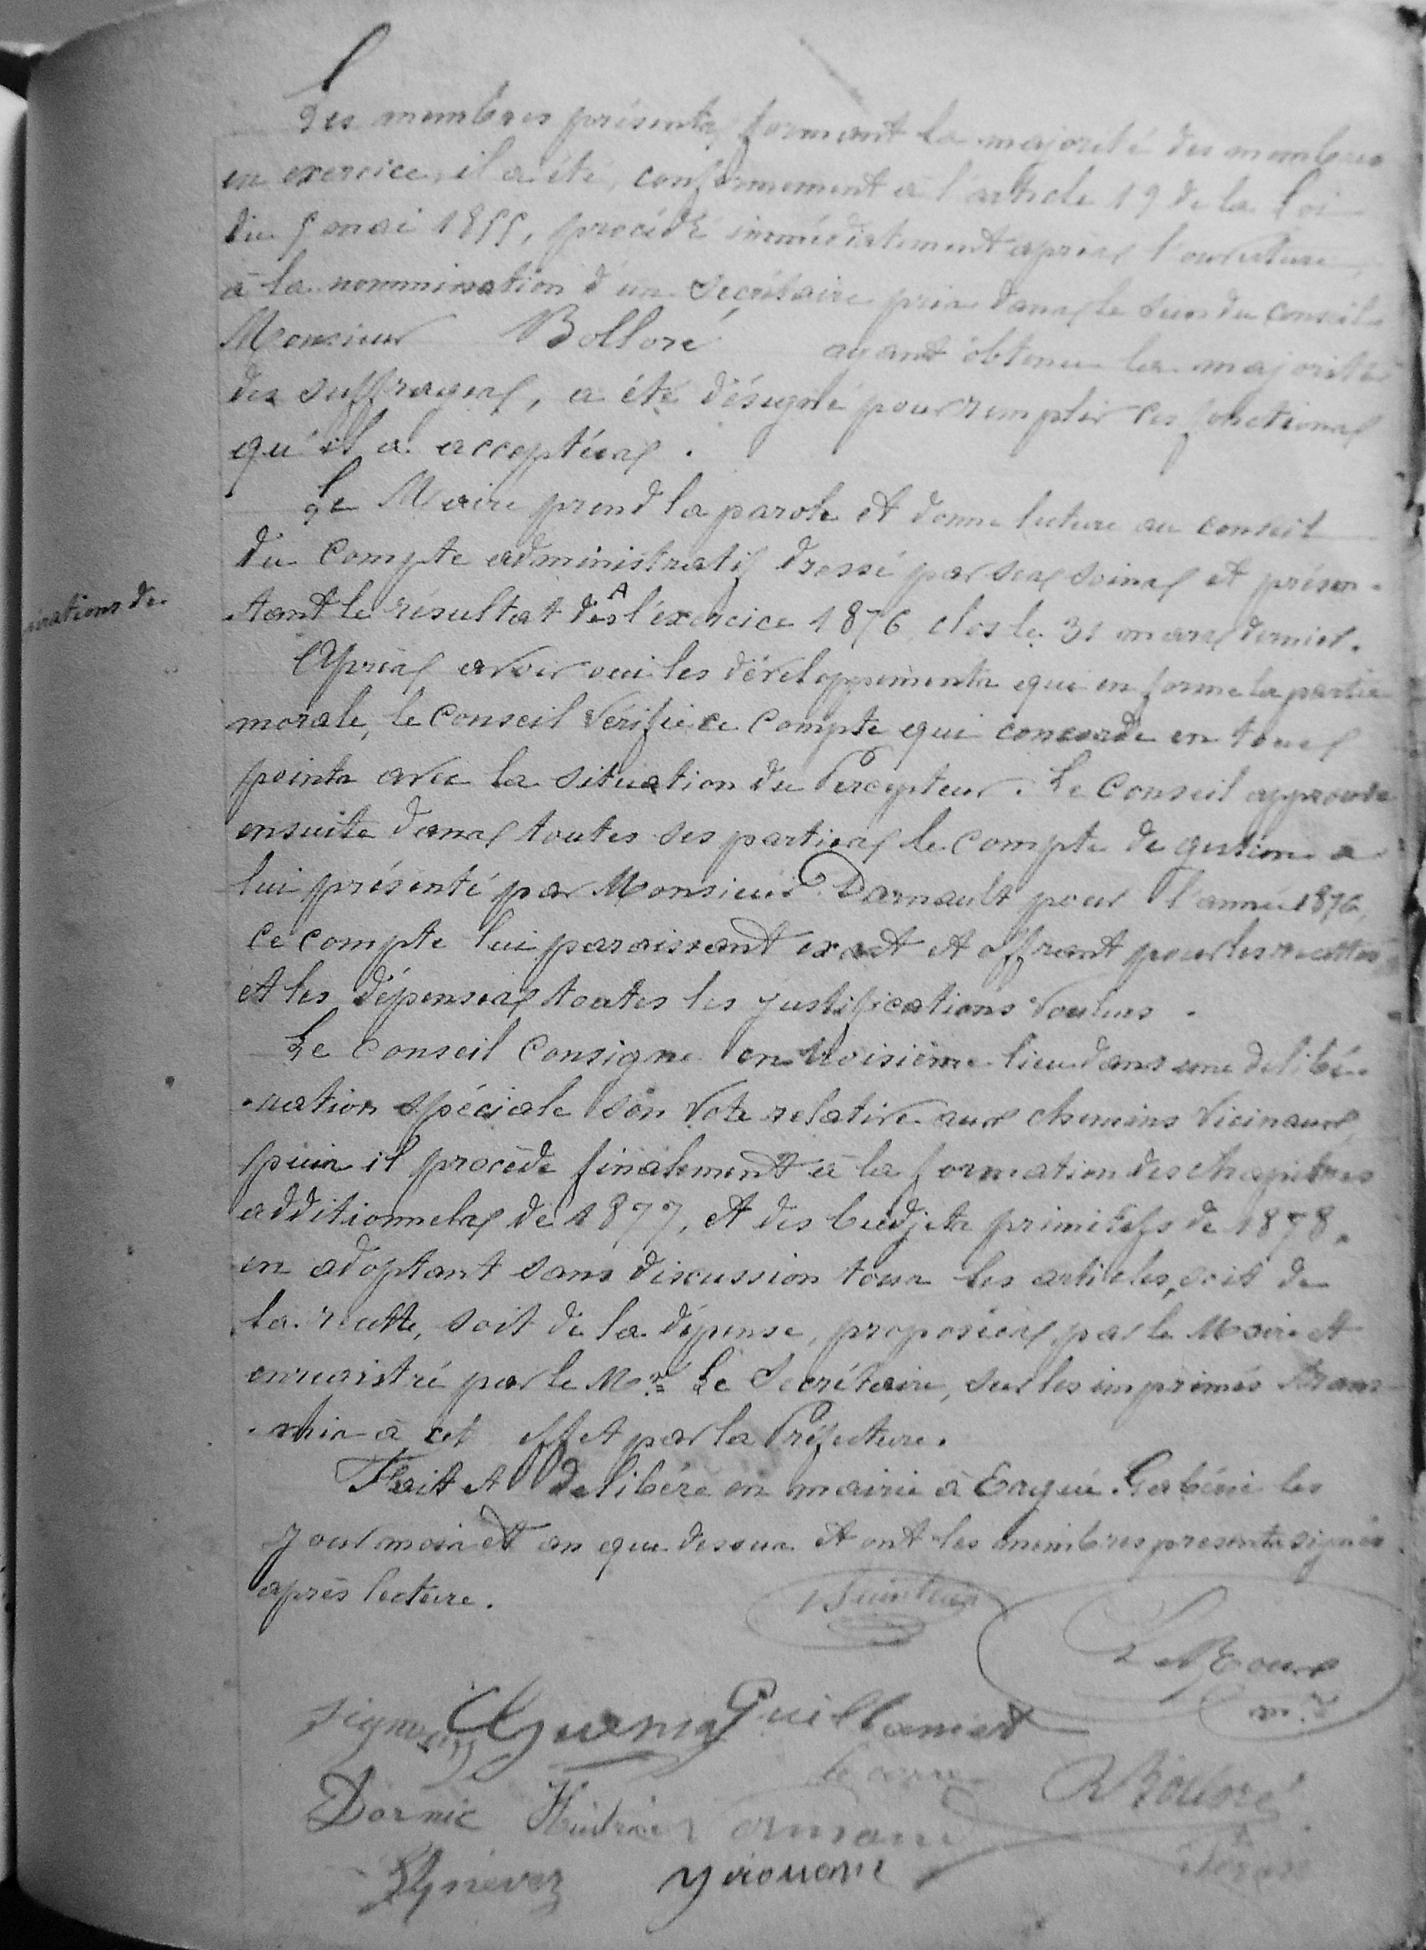 Les membres présents formant la majorité des membres
en exercice, il a été, conformément à l'article 19 de la Loi
du 5 mai 1855, procédé immédiatement après l'ouverture,
à la nommination d'un Secrétaire pris dans le sein du conseil.
Monsieur Bolloré ayant obtenu la majorité
des suffrages, a été désigné pour remplir ces fonctions
qu'il a acceptées.
Le Maire prend la parole et donne lecture au conseil
du compte administratif dressé par ses soins et présen-
tant le résultat de l'exercice 1876, clos le 31 mars dernier.
irations de
Après avoir ouï les développements qui en forme la partie
morale, le conseil vérifie ce compte qui concorde en tous
points avec la situation du Percepteur. Le Conseil approuve
ensuite dans toutes ses parties le compte de gestion a
lui présenté par Monsieur Darnault pour l'année 1876,
ce compte lui paraissant exact et offrant pour les recettes
et les dépenses toutes les justifications voulues.
Le Conseil Consigne en troisième lieu dans une delibé-
-ration spéciale son vote relative aux chemins vicinaux,
puis il procède finalement à la formation des chapitres
additionnels de 1877, et des budjets primitifs de 1878.
en adoptant sans discussion tous les articles, soit de
la recette, soit de la dépense, proposées par le Maire et
enregistré par le Mr. Le Secrétaire, sur les imprimés trans-
-mis à cet effet par la Préfecture.
Fait et délibéré en mairie à Ergué-Gabéric les
jour mois et an que dessus et ont les membres présents signés
après lecture.
Le Roux
mre
Guillamet
Bolloré
Dornic